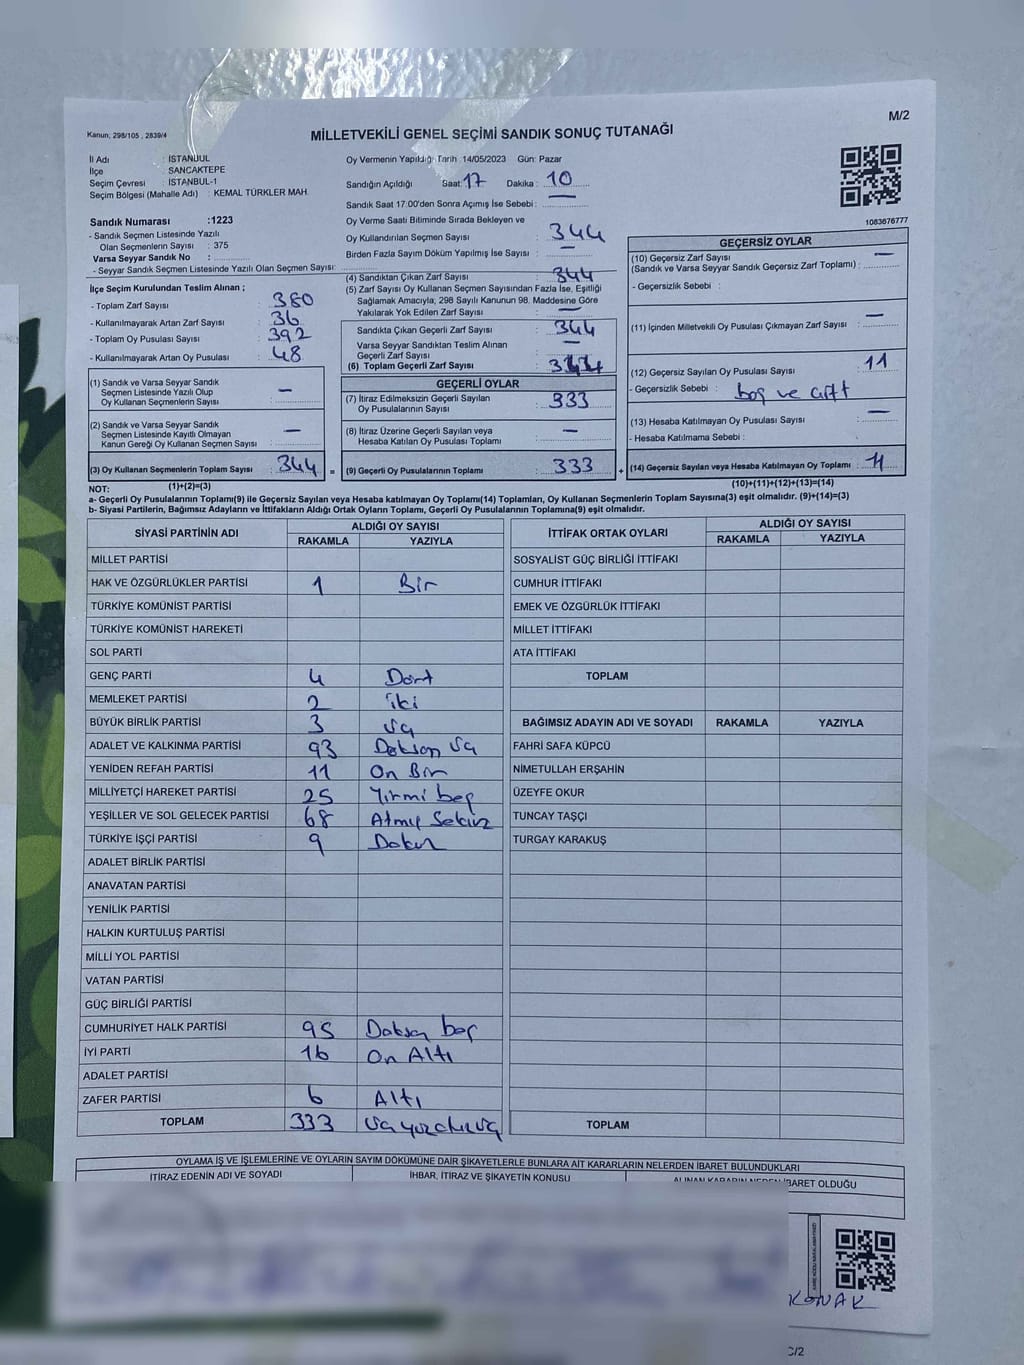 M/2
Kanun; 298/105 , 2839/4
MİLLETVEKİLİ GENEL SEÇİMİ SANDIK SONUÇ TUTANAĞI
İl Adı : İSTANBUL
İlçe : SANCAKTEPE
Seçim Çevresi : İSTANBUL-1
Seçim Bölgesi (Mahalle Adı) : KEMAL TÜRKLER MAH.
Sandık Numarası :1223
- Sandık Seçmen Listesinde Yazılı
Olan Seçmenlerin Sayısı : 375
Varsa Seyyar Sandık No :
- Seyyar Sandık Seçmen Listesinde Yazılı Olan Seçmen Sayısı:
Oy Vermenin Yapıldığı Tarih :14/05/2023 Gün: Pazar
Sandığın Açıldığı Saat: 17 Dakika : 10
Sandık Saat 17:00'den Sonra Açımış İse Sebebi : —
Oy Verme Saati Bitiminde Sırada Bekleyen ve
Oy Kullandırılan Seçmen Sayısı : 344
Birden Fazla Sayım Döküm Yapılmış İse Sayısı : —
1083676777
İlçe Seçim Kurulundan Teslim Alınan ;
- Toplam Zarf Sayısı : 380
- Kullanılmayarak Artan Zarf Sayısı : 36
- Toplam Oy Pusulası Sayısı : 392
- Kullanılmayarak Artan Oy Pusulası : 48
(1) Sandık ve Varsa Seyyar Sandık
Seçmen Listesinde Yazılı Olup
Oy Kullanan Seçmenlerin Sayısı : —
(2) Sandık ve Varsa Seyyar Sandık
Seçmen Listesinde Kayıtlı Olmayan
Kanun Gereği Oy Kullanan Seçmen Sayısı : —
(3) Oy Kullanan Seçmenlerin Toplam Sayısı : 344 =
(4) Sandıktan Çıkan Zarf Sayısı : 344
(5) Zarf Sayısı Oy Kullanan Seçmen Sayısından Fazla İse, Eşitliği
Sağlamak Amacıyla, 298 Sayılı Kanunun 98. Maddesine Göre
Yakılarak Yok Edilen Zarf Sayısı : —
Sandıkta Çıkan Geçerli Zarf Sayısı : 344
Varsa Seyyar Sandıktan Teslim Alınan
Geçerli Zarf Sayısı : —
(6) Toplam Geçerli Zarf Sayısı : 344
GEÇERLİ OYLAR
(7) İtiraz Edilmeksizin Geçerli Sayılan
Oy Pusulalarının Sayısı : 333
(8) İtiraz Üzerine Geçerli Sayılan veya
Hesaba Katılan Oy Pusulası Toplamı : —
(9) Geçerli Oy Pusulalarının Toplamı : 333 +
GEÇERSİZ OYLAR
(10) Geçersiz Zarf Sayısı : —
(Sandık ve Varsa Seyyar Sandık Geçersiz Zarf Toplamı) :
- Geçersizlik Sebebi :
(11) İçinden Milletvekili Oy Pusulası Çıkmayan Zarf Sayısı : —
(12) Geçersiz Sayılan Oy Pusulası Sayısı : 11
- Geçersizlik Sebebi : boş ve çift
(13) Hesaba Katılmayan Oy Pusulası Sayısı : —
- Hesaba Katılmama Sebebi :
(14) Geçersiz Sayılan veya Hesaba Katılmayan Oy Toplamı : 11
NOT: (1)+(2)=(3) (10)+(11)+(12)+(13)=(14)
a- Geçerli Oy Pusulalarının Toplamı(9) ile Geçersiz Sayılan veya Hesaba katılmayan Oy Toplamı(14) Toplamları, Oy Kullanan Seçmenlerin Toplam Sayısına(3) eşit olmalıdır. (9)+(14)=(3)
b- Siyasi Partilerin, Bağımsız Adayların ve İttifakların Aldığı Ortak Oyların Toplamı, Geçerli Oy Pusulalarının Toplamına(9) eşit olmalıdır.
SİYASİ PARTİNİN ADI ALDIĞI OY SAYISI
RAKAMLA YAZIYLA
MİLLET PARTİSİ
HAK VE ÖZGÜRLÜKLER PARTİSİ 1 Bir
TÜRKİYE KOMÜNİST PARTİSİ
TÜRKİYE KOMÜNİST HAREKETİ
SOL PARTİ
GENÇ PARTİ 4 Dört
MEMLEKET PARTİSİ 2 iki
BÜYÜK BİRLİK PARTİSİ 3 üç
ADALET VE KALKINMA PARTİSİ 93 Doksan üç
YENİDEN REFAH PARTİSİ 11 On Bir
MİLLİYETÇİ HAREKET PARTİSİ 25 Yirmi beş
YEŞİLLER VE SOL GELECEK PARTİSİ 68 Atmış Sekiz
TÜRKİYE İŞÇİ PARTİSİ 9 Dokuz
ADALET BİRLİK PARTİSİ
ANAVATAN PARTİSİ
YENİLİK PARTİSİ
HALKIN KURTULUŞ PARTİSİ
MİLLİ YOL PARTİSİ
VATAN PARTİSİ
GÜÇ BİRLİĞİ PARTİSİ
CUMHURİYET HALK PARTİSİ 95 Doksan beş
İYİ PARTİ 16 On Altı
ADALET PARTİSİ
ZAFER PARTİSİ 6 Altı
TOPLAM 333 üçyüzotuzüç
İTTİFAK ORTAK OYLARI ALDIĞI OY SAYISI
RAKAMLA YAZIYLA
SOSYALİST GÜÇ BİRLİĞİ İTTİFAKI
CUMHUR İTTİFAKI
EMEK VE ÖZGÜRLÜK İTTİFAKI
MİLLET İTTİFAKI
ATA İTTİFAKI
TOPLAM
BAĞIMSIZ ADAYIN ADI VE SOYADI RAKAMLA YAZIYLA
FAHRİ SAFA KÜPCÜ
NİMETULLAH ERŞAHİN
ÜZEYFE OKUR
TUNCAY TAŞÇI
TURGAY KARAKUŞ
TOPLAM
OYLAMA İŞ VE İŞLEMLERİNE VE OYLARIN SAYIM DÖKÜMÜNE DAİR ŞİKAYETLERLE BUNLARA AİT KARARLARIN NELERDEN İBARET BULUNDUKLARI
İTİRAZ EDENİN ADI VE SOYADI İHBAR, İTİRAZ VE ŞİKAYETİN KONUSU ALINAN KARARIN NEDEN İBARET OLDUĞU
KONAK